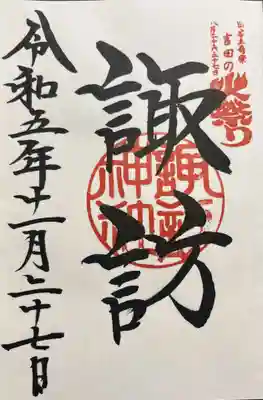 吉田の
火祭り
諏訪
諏訪
神社
令和五年十一月二十七日